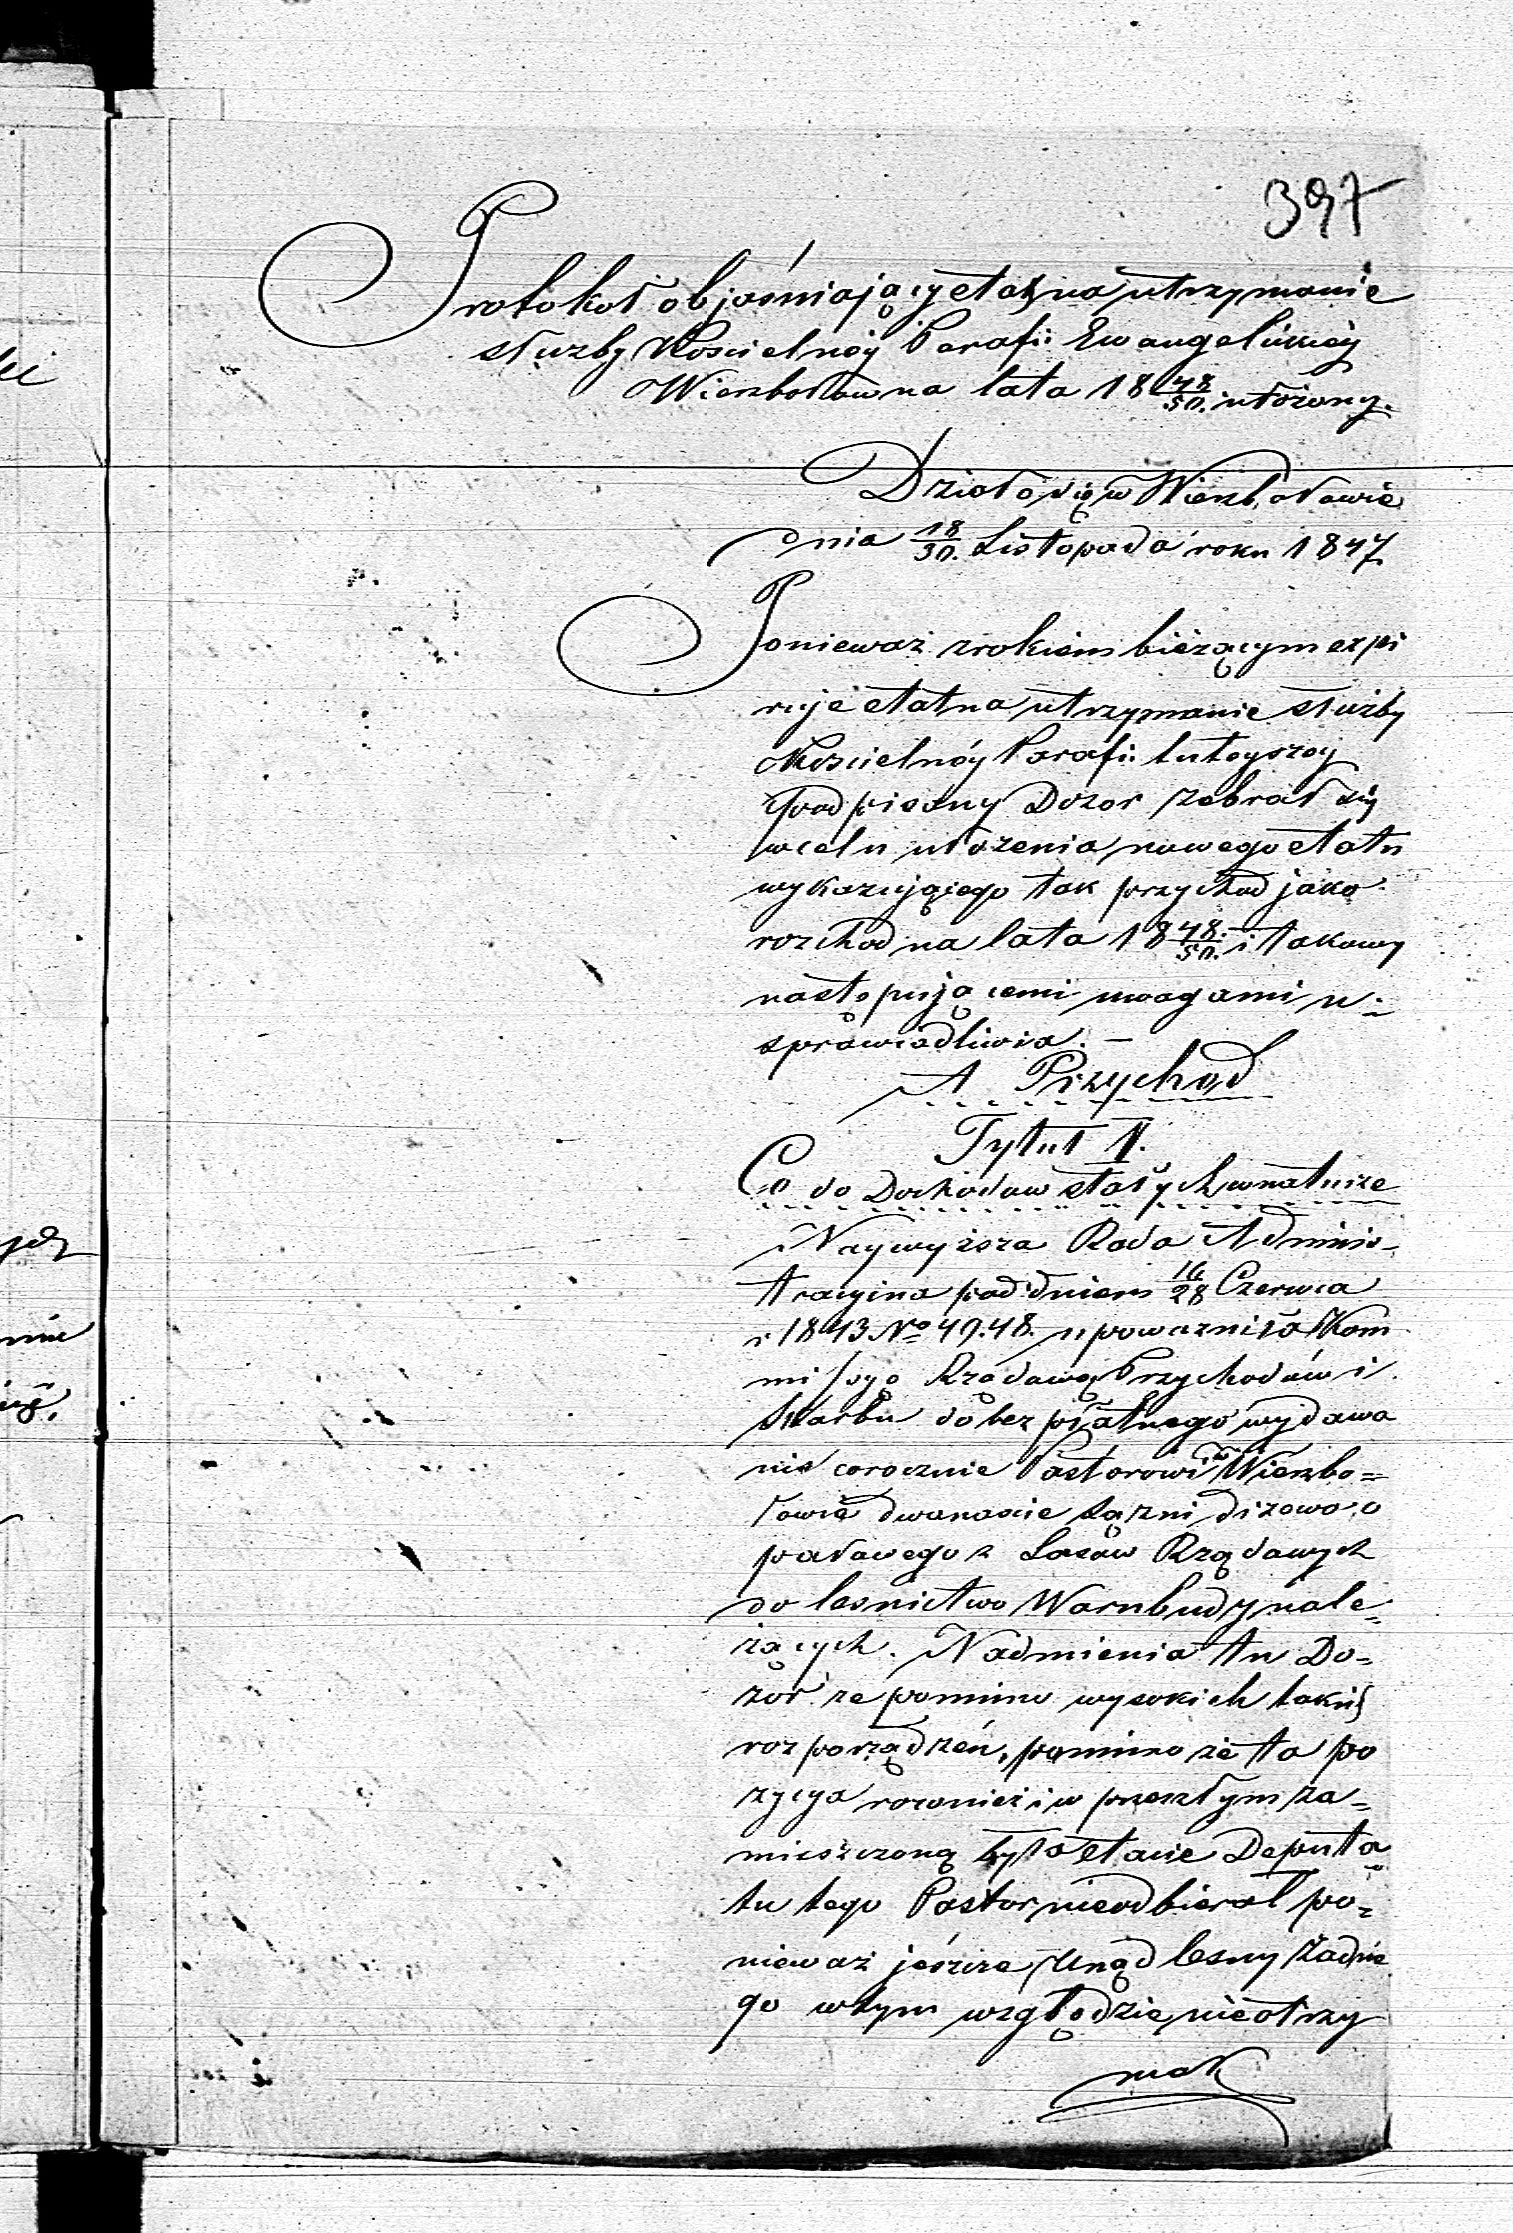 397
Protokoł objaśniający etat na utrzymanie
służby Kościelnéy Parafii Ewangelickiéy
Wierzbołow na lata 18 48/50. ułożony.
Działo się w Wierzbołowie
dnia 18/30. Listopada roku 1847
Ponieważ z rokiem bieżącym expi
ruje etat na utrzymanie służby
Kościelnéy Parafii tuteyszey
Podpisany Dozor zebrał się
w celu ułożenia nowego etatu
wykazującego tak przychod jako
rozchod na lata 18 48/50. i takowy
następującemi uwagami u=
sprawiedliwia. —
A Przychod
Tytuł I.
Co do Dochodow stałych w naturze
Naywyższa Rada Adminis=
tracyina pod dniem 16/28 Czerwca
r 1843 No 49.48. upoważniła Kom
missyą Rządową Przychodów i
Skarbu do bezpłatnego wydawa
nia corocznie Pastorowi w Wierzbo=
łowie dwanaście sążni drzewa o
pałowego z Lasow Rządowych
do lesnictwa Warnbudy nale=
żących. Nadmienia tu Do=
zór że pomimo wysokich takich
rozporządzeń, pomimo że ta po
zycya rownież i w przeszłym za=
mieszczoną była etacie Deputa
tu tego Pastor nieodbierał po=
nieważ jeszcze Urząd lesny żadne
go w tym względzie nieotrzy
mał